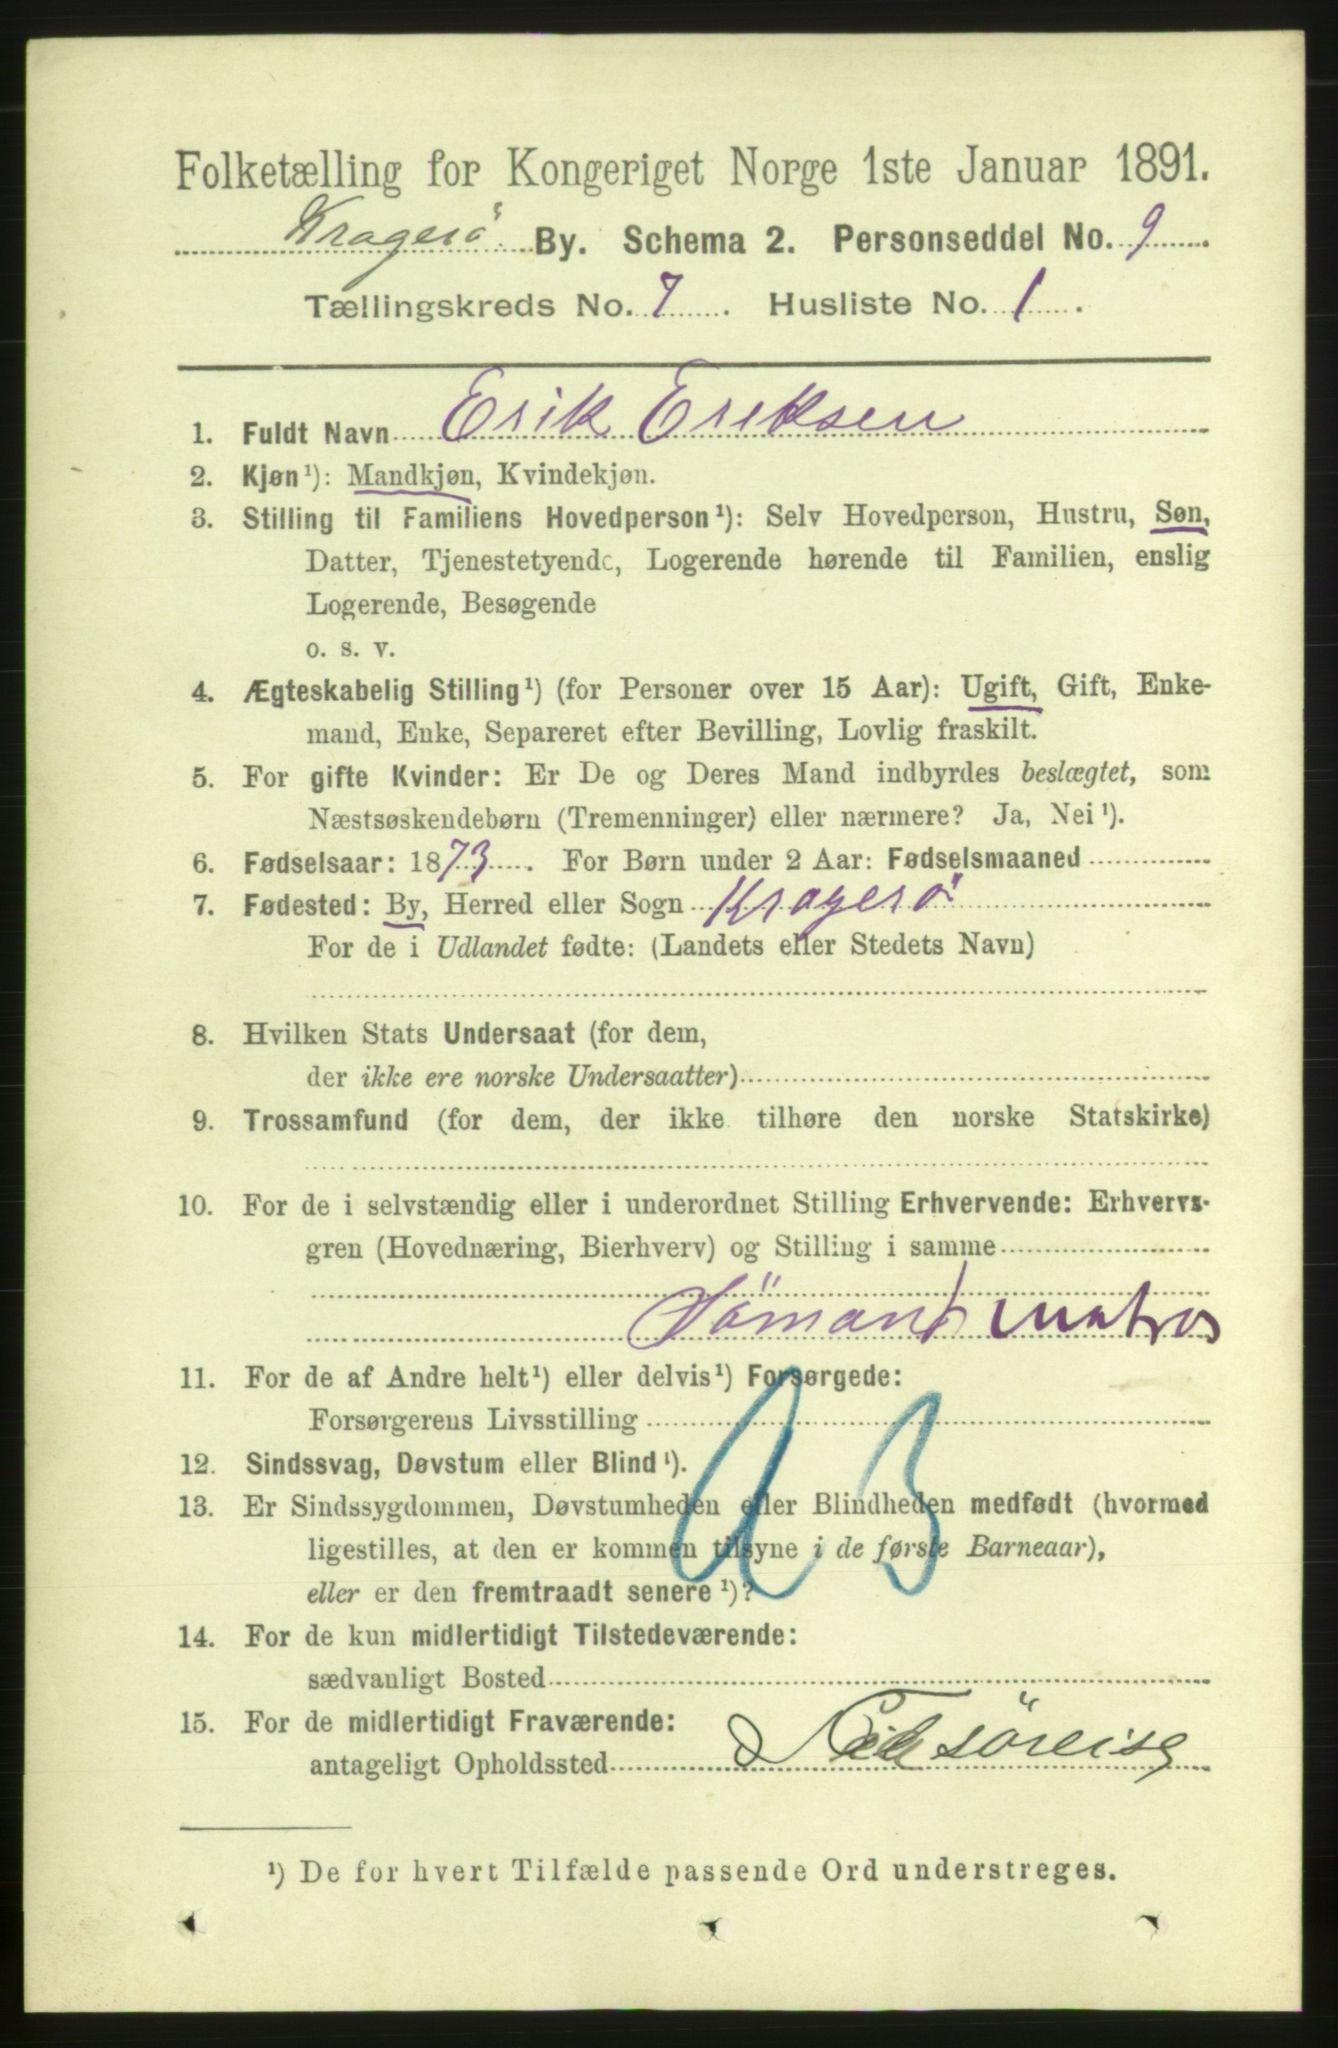 Folketælling for Kongeriget Norge 1ste Januar 1891.
Kragerö By. Schema 2. Personseddel No. 9
Tællingskreds No. 7. Husliste No. 1.
1. Fuldt Navn Erik Eriksen
2. Kjøn¹): Mandkjøn, Kvindekjøn.
3. Stilling til Familiens Hovedperson¹): Selv Hovedperson, Hustru, Søn,
Datter, Tjenestetyende, Logerende hørende til Familien, enslig
Logerende, Besøgende
o. s. v.
4. Ægteskabelig Stilling¹) (for Personer over 15 Aar): Ugift, Gift, Enke-
mand, Enke, Separeret efter Bevilling, Lovlig fraskilt.
5. For gifte Kvinder: Er De og Deres Mand indbyrdes beslægtet, som
Næstsøskendebørn (Tremenninger) eller nærmere? Ja, Nei¹).
6. Fødselsaar: 1873. For Børn under 2 Aar: Fødselsmaaned
7. Fødested: By, Herred eller Sogn Kragerö
For de i Udlandet fødte: (Landets eller Stedets Navn)
8. Hvilken Stats Undersaat (for dem,
der ikke ere norske Undersaatter)
9. Trossamfund (for dem, der ikke tilhøre den norske Statskirke)
10. For de i selvstændig eller i underordnet Stilling Erhvervende: Erhvervs-
gren (Hovednæring, Bierhverv) og Stilling i samme
Sömand matros
11. For de af Andre helt¹) eller delvis¹) Forsørgede:
Forsørgerens Livsstilling
12. Sindssvag, Døvstum eller Blind¹).
13. Er Sindssygdommen, Døvstumheden eller Blindheden medfødt (hvormed
ligestilles, at den er kommen tilsyne i de første Barneaar),
eller er den fremtraadt senere¹)?
14. For de kun midlertidigt Tilstedeværende:
sædvanligt Bosted
15. For de midlertidigt Fraværende:
antageligt Opholdssted söreise
¹) De for hvert Tilfælde passende Ord understreges.